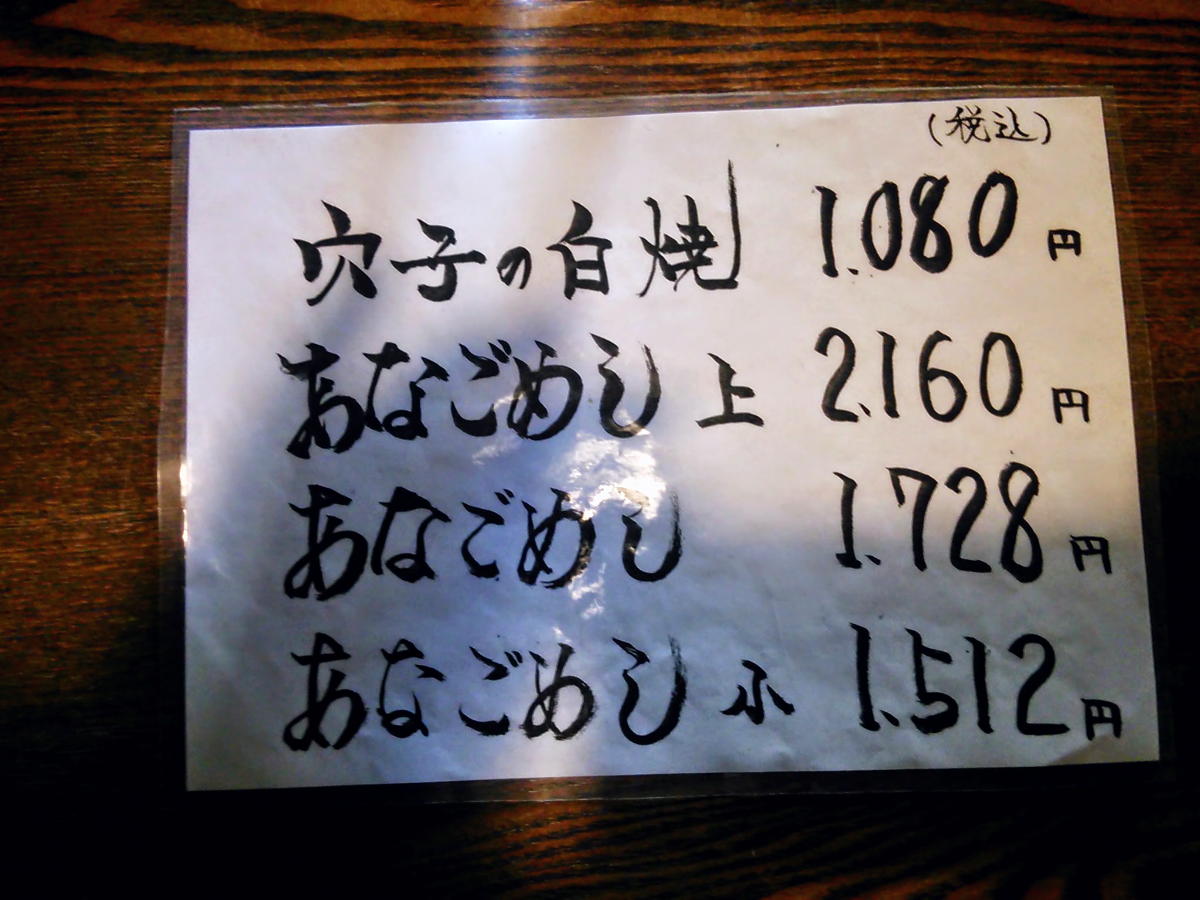 (税込)
穴子の白焼 1.080円
あなごめし 上 2.160円
あなごめし 1.728円
あなごめし 小 1.512円